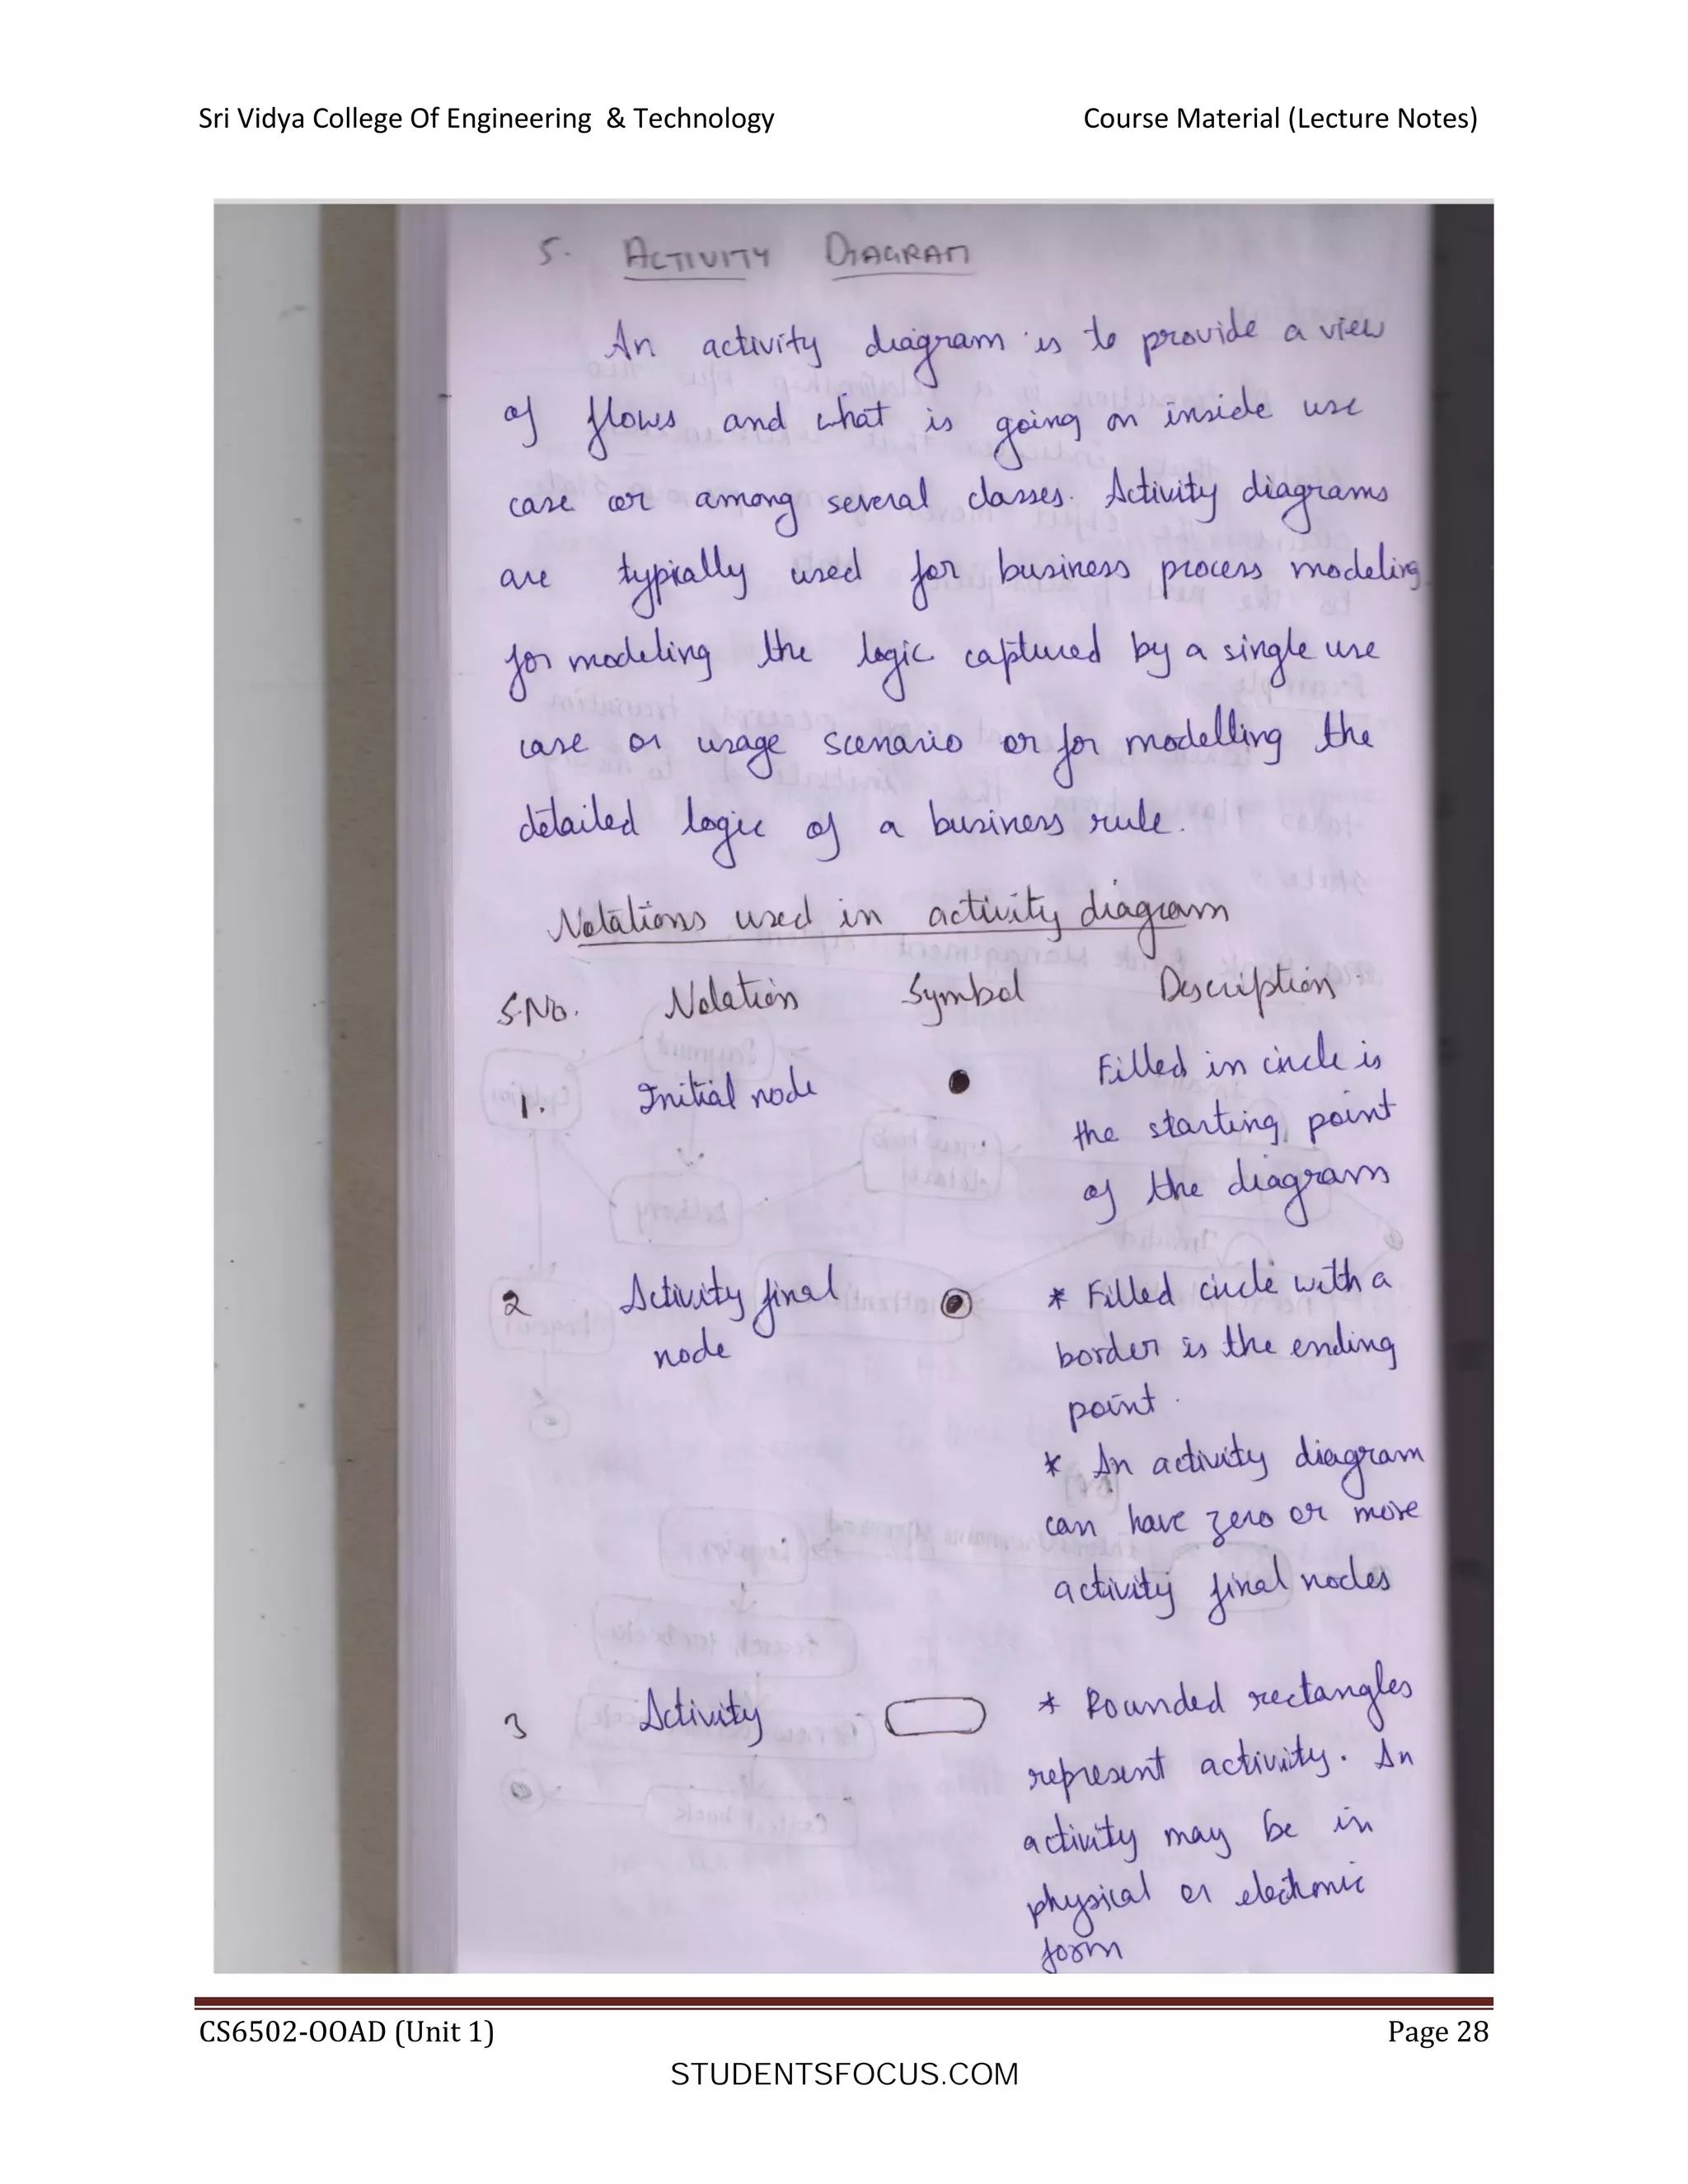 Sri Vidya College Of Engineering & Technology Course Material (Lecture Notes)
5. ACTIVITY DIAGRAM
An activity diagram is to provide a view
of flows and what is going on inside use
case or among several classes. Activity diagrams
are typically used for business process modeling
for modeling the logic captured by a single use
case or usage scenario or for modelling the
detailed logic of a business rule.
Notations used in activity diagram
S.No. Notation Symbol Description
1. Initial node Filled in circle is
the starting point
of the diagram
2 Activity final * Filled circle with a
node border is the ending
point.
* An activity diagram
can have zero or more
activity final nodes
3 Activity * Rounded rectangles
represent activity. An
activity may be in
physical or electronic
form
CS6502-OOAD (Unit 1) Page 28
STUDENTSFOCUS.COM